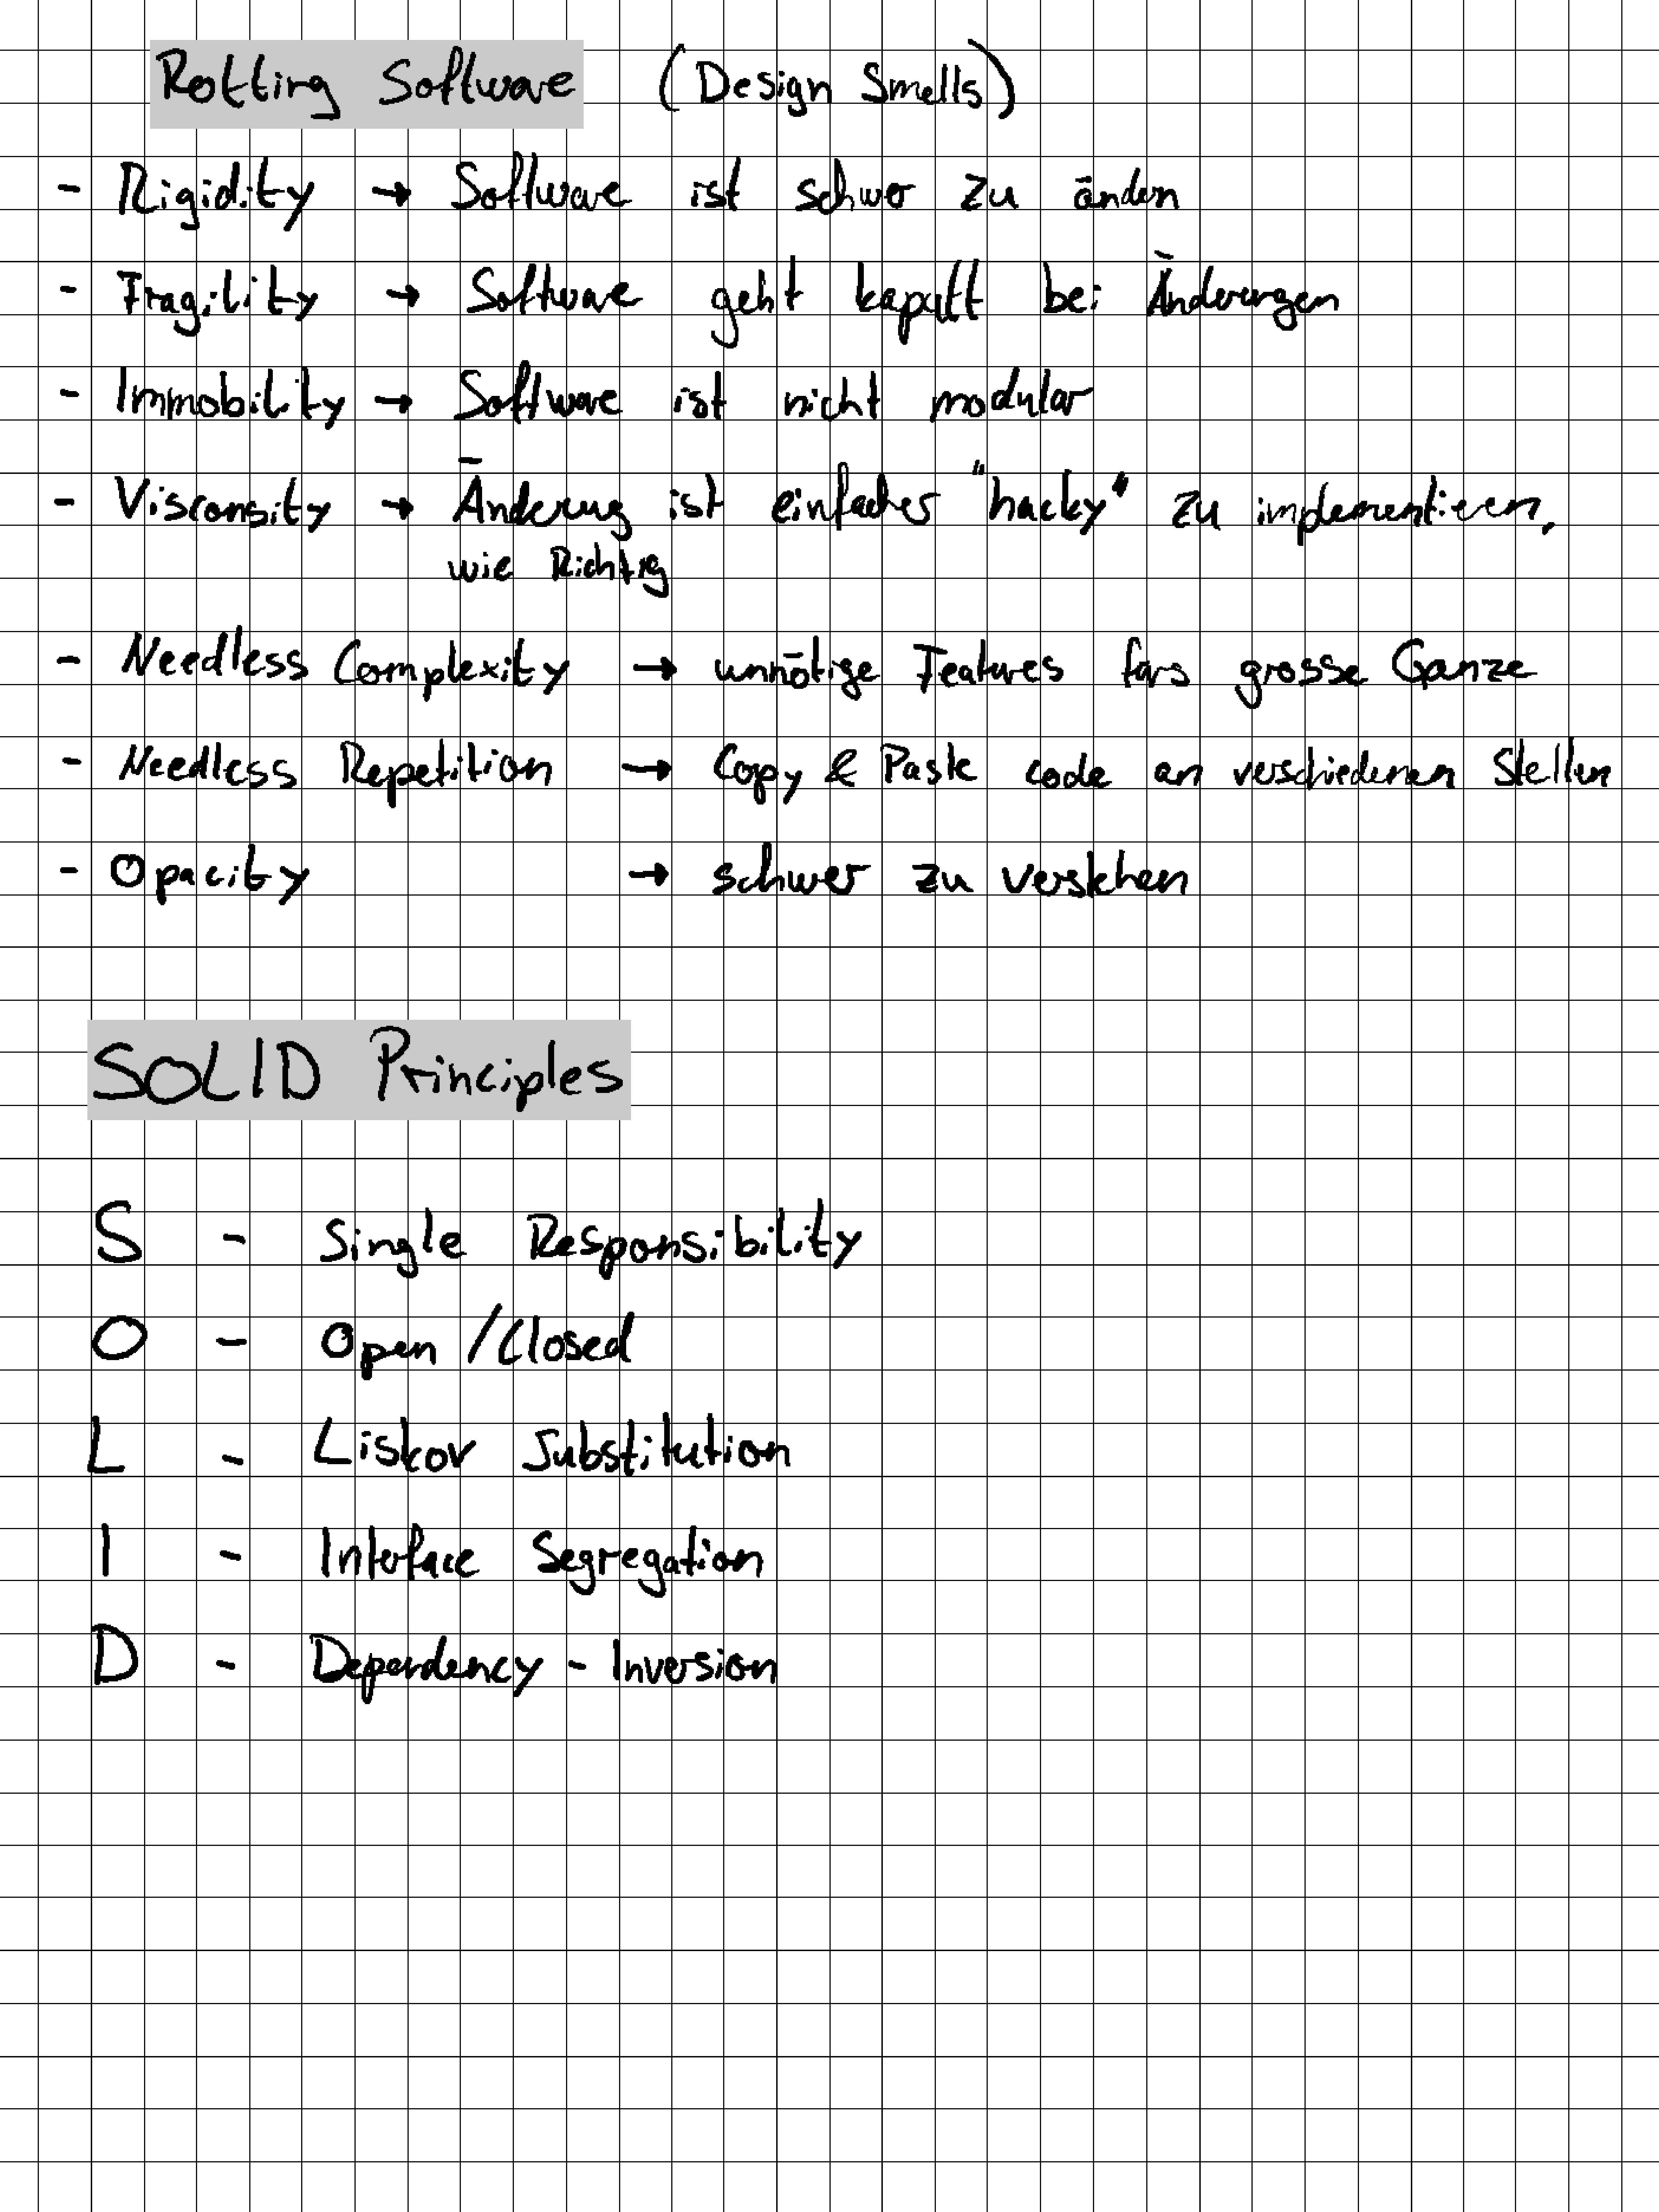 Rotting Software (Design Smells)
- Rigidity → Software ist schwer zu ändern
- Fragility → Software geht kaputt bei Änderungen
- Immobility → Software ist nicht modular
- Visconsity → Änderung ist einfacher "hacky" zu implementieren,
wie Richtig
- Needless Complexity → unnötige Features fürs grosse Ganze
- Needless Repetition → Copy & Paste code an verschiedenen Stellen
- Opacity → schwer zu verstehen
SOLID Principles
S - Single Responsibility
O - Open / Closed
L - Liskov Substitution
I - Interface Segregation
D - Dependency - Inversion